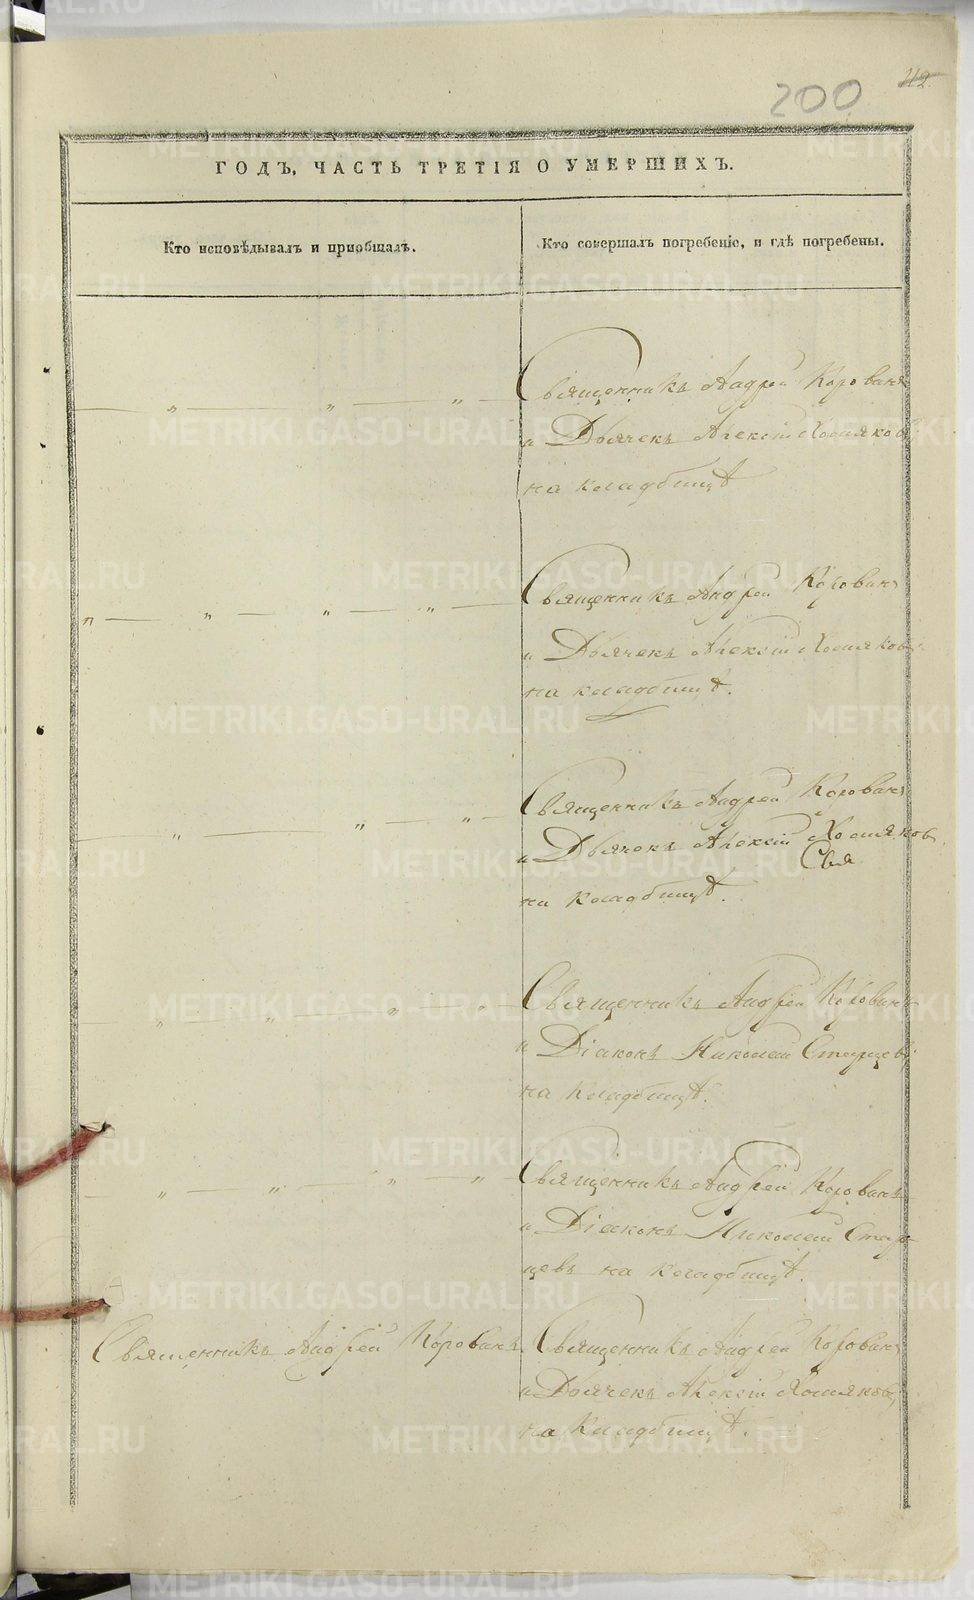 200
212
ГОДЪ, ЧАСТЬ ТРЕТІЯ О УМЕРШИХЪ.
Кто исповѣдывалъ и пріобщалъ.
Кто совершалъ погребеніе, и гдѣ погребены.
Священникъ Андрей Корованъ
и Дьячекъ Алексій Хомяковъ
на кладбищѣ
Священникъ Андрей Корованъ
и Дьячекъ Алексій Хомяковъ
на кладбищѣ.
Священникъ Андрей Корованъ
и Дьячекъ Алексій Хомяковъ
Свя
на кладбищѣ.
Священникъ Андрей Корованъ
и Діаконъ Николай Старцевъ
на кладбищѣ.
Священникъ Андрей Корованъ
и Діаконъ Николай Стар-
цевъ на кладбищѣ.
Священникъ Андрей Корованъ
Священникъ Андрей Корованъ
и Дьячекъ Алексій Хомяковъ
на кладбищѣ.
METRIKI.GASO-URAL.RU